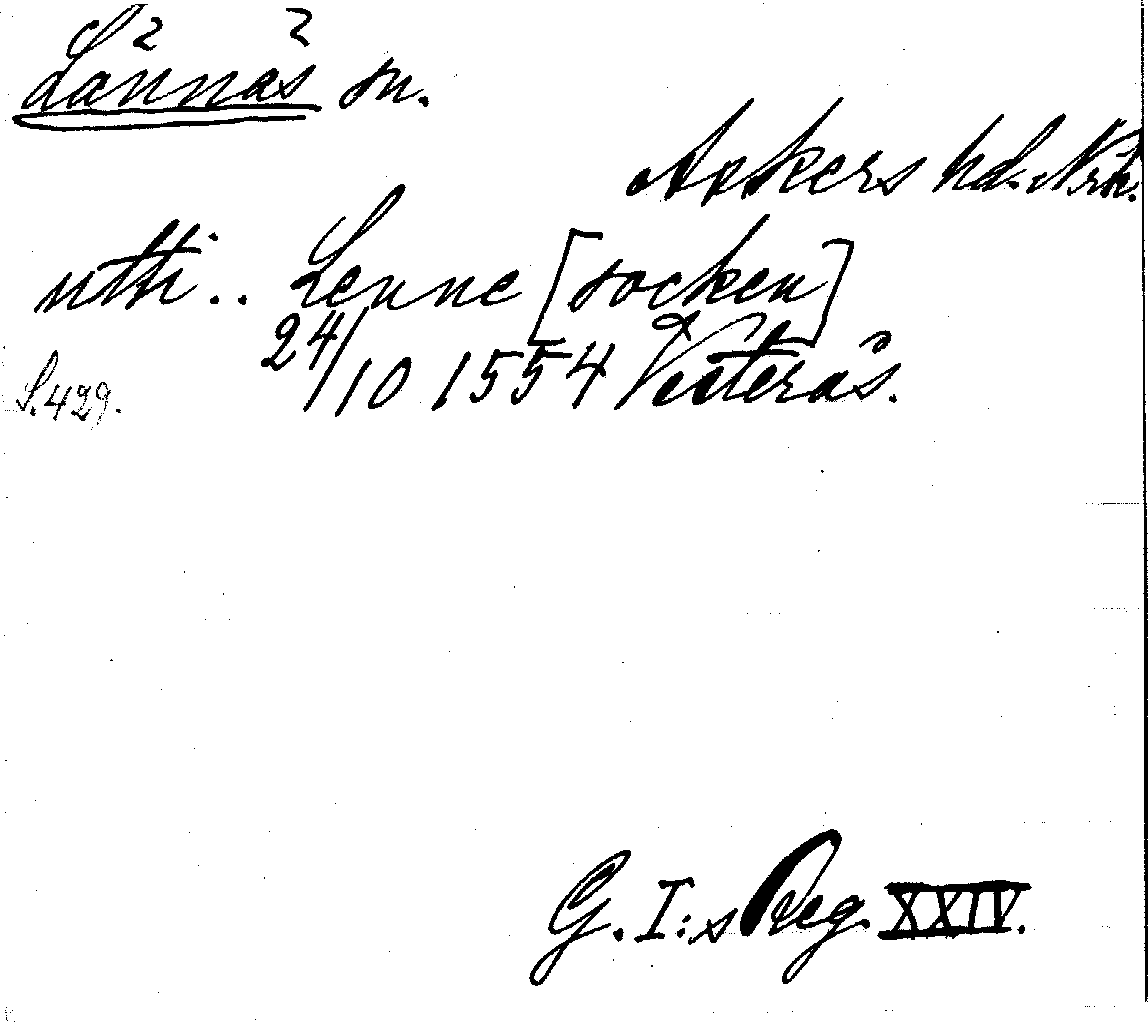 Lännäs sn.
Askers hd. Nrk.
utti .. Lenne [socken]
24/10 1554 Vesterås.
S. 429.
G. I:s Reg. XXIV.